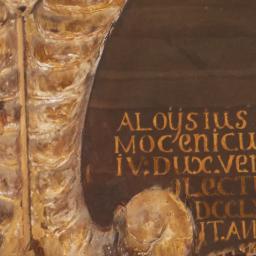 ALOYSIUS
MOCENICU
IV: DUX: VEN
LECTU
DCCLX
IT. AN